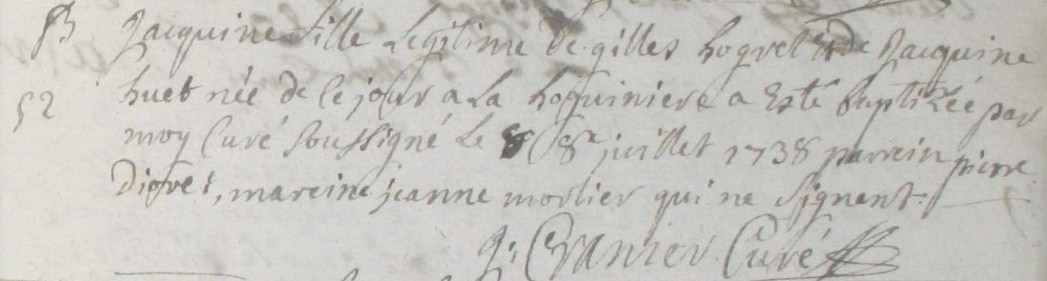 B Jacquine fille Legitime de gilles hoguet et de Jacquine
52 huet née de ce jour a La hoguiniere a Esté baptizéé par
moy Curé soussigné Le 8e juillet 1738 parrein pierre
Diguet, mareine jeanne mortier qui ne signent.
Cranier Curé